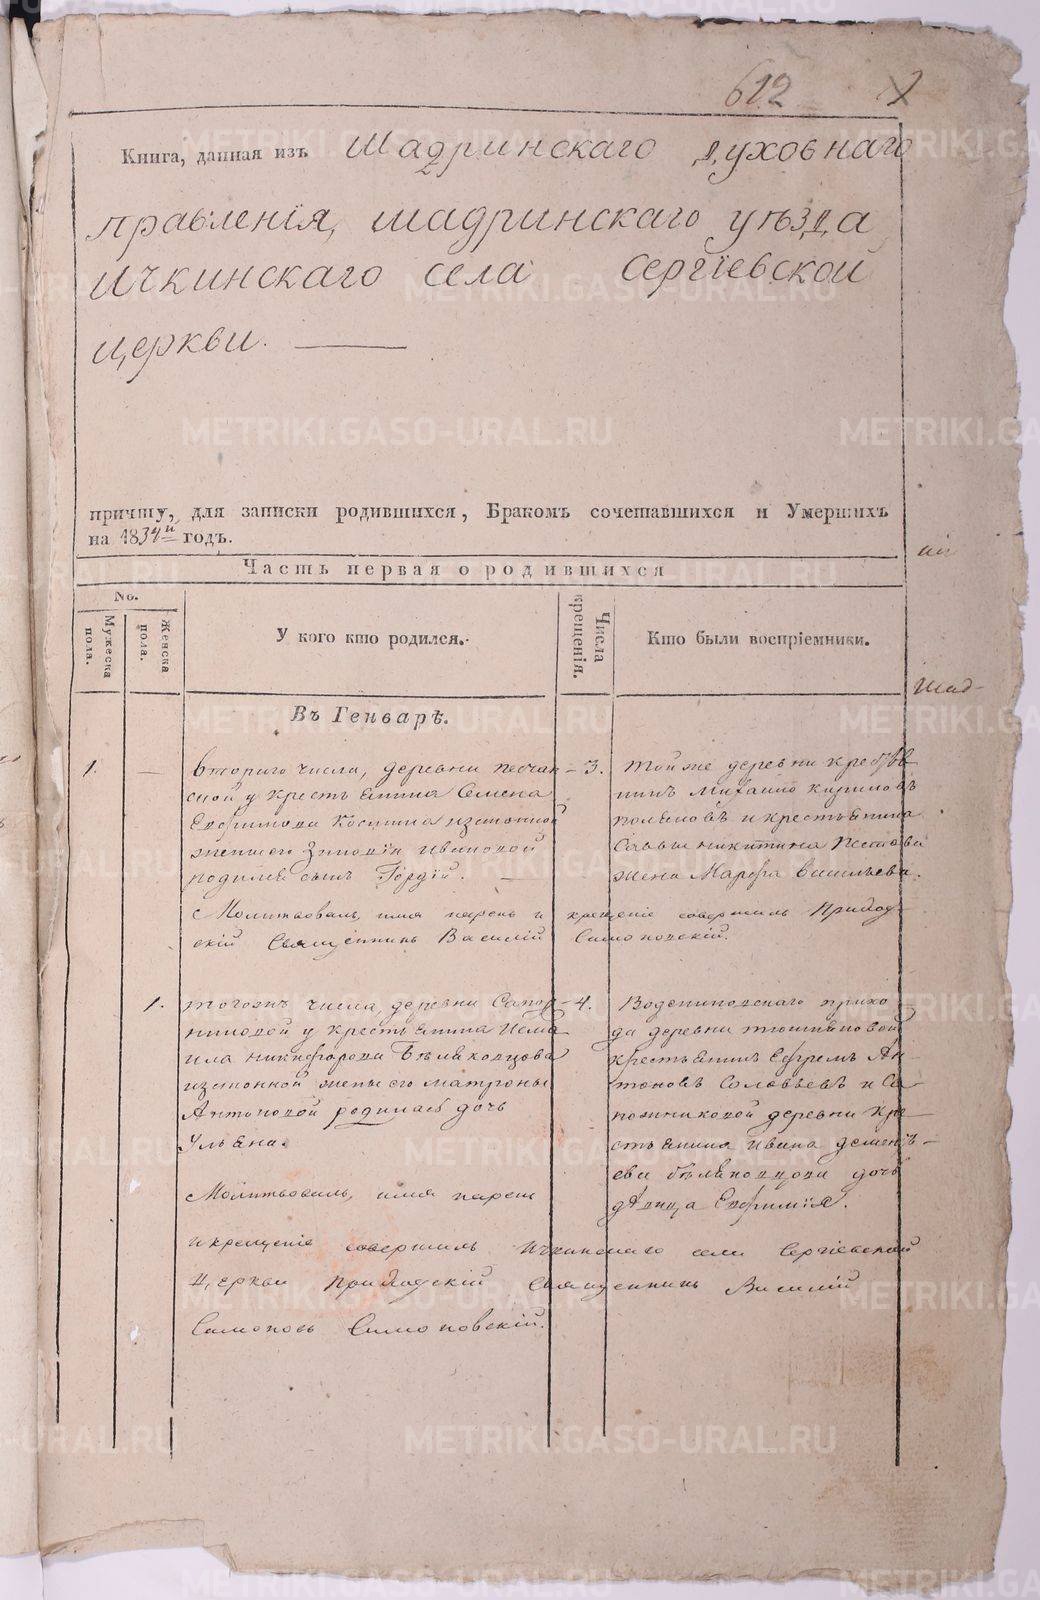 612
Книга, данная изъ Шадринскаго духовнаго
правленія, шадринскаго уѣзда
ичкинскаго села Сергіевской
церкви.
причту, для записки родившихся, Бракомъ сочетавшихся и Умершихъ
на 1834й годъ.
Часть первая о родившихся
No.
Мужеска пола.
Женска пола.
У кого кто родился.
Числа крещенія.
Кто были воспріемники.
Шад-
Въ Генварѣ.
1. — втораго числа, деревни песчан
ской у крестьянина Семена
Евфимова Косинина изаконной
женыего Зиновіи Ивановой
родился сынъ Гордій.
3. тойже деревни
Михайло Кириловъ
поляковъ и крестьянина
Саввы никитина Пестова
жена Марфа васильева.
Молитвовалъ, имя нарекъ и крещеніе совершилъ Приход-
скій Священникъ Василій
1. тогожъ числа, деревни Сапож
никовой у крестьянина Исма
ила никифорова Бѣлаковцова
изаконной жены его матроны
Антоновой родилась дочь
Ульяна.
4. прихо
да деревни
крестьянинъ Ефремъ Ан-
тоновъ Соловьевъ и Са-
пожниковой деревни кре
стьянина Ивана дементь-
ева бѣлаковцова дочь
дѣвица Евфимія.
Молитвовалъ, имя нарекъ
и крещеніе совершилъ Ичкинскаго села Сергіевской
Церкви Приходскій Священникъ Василій
METRIKI.GASO-URAL.RU